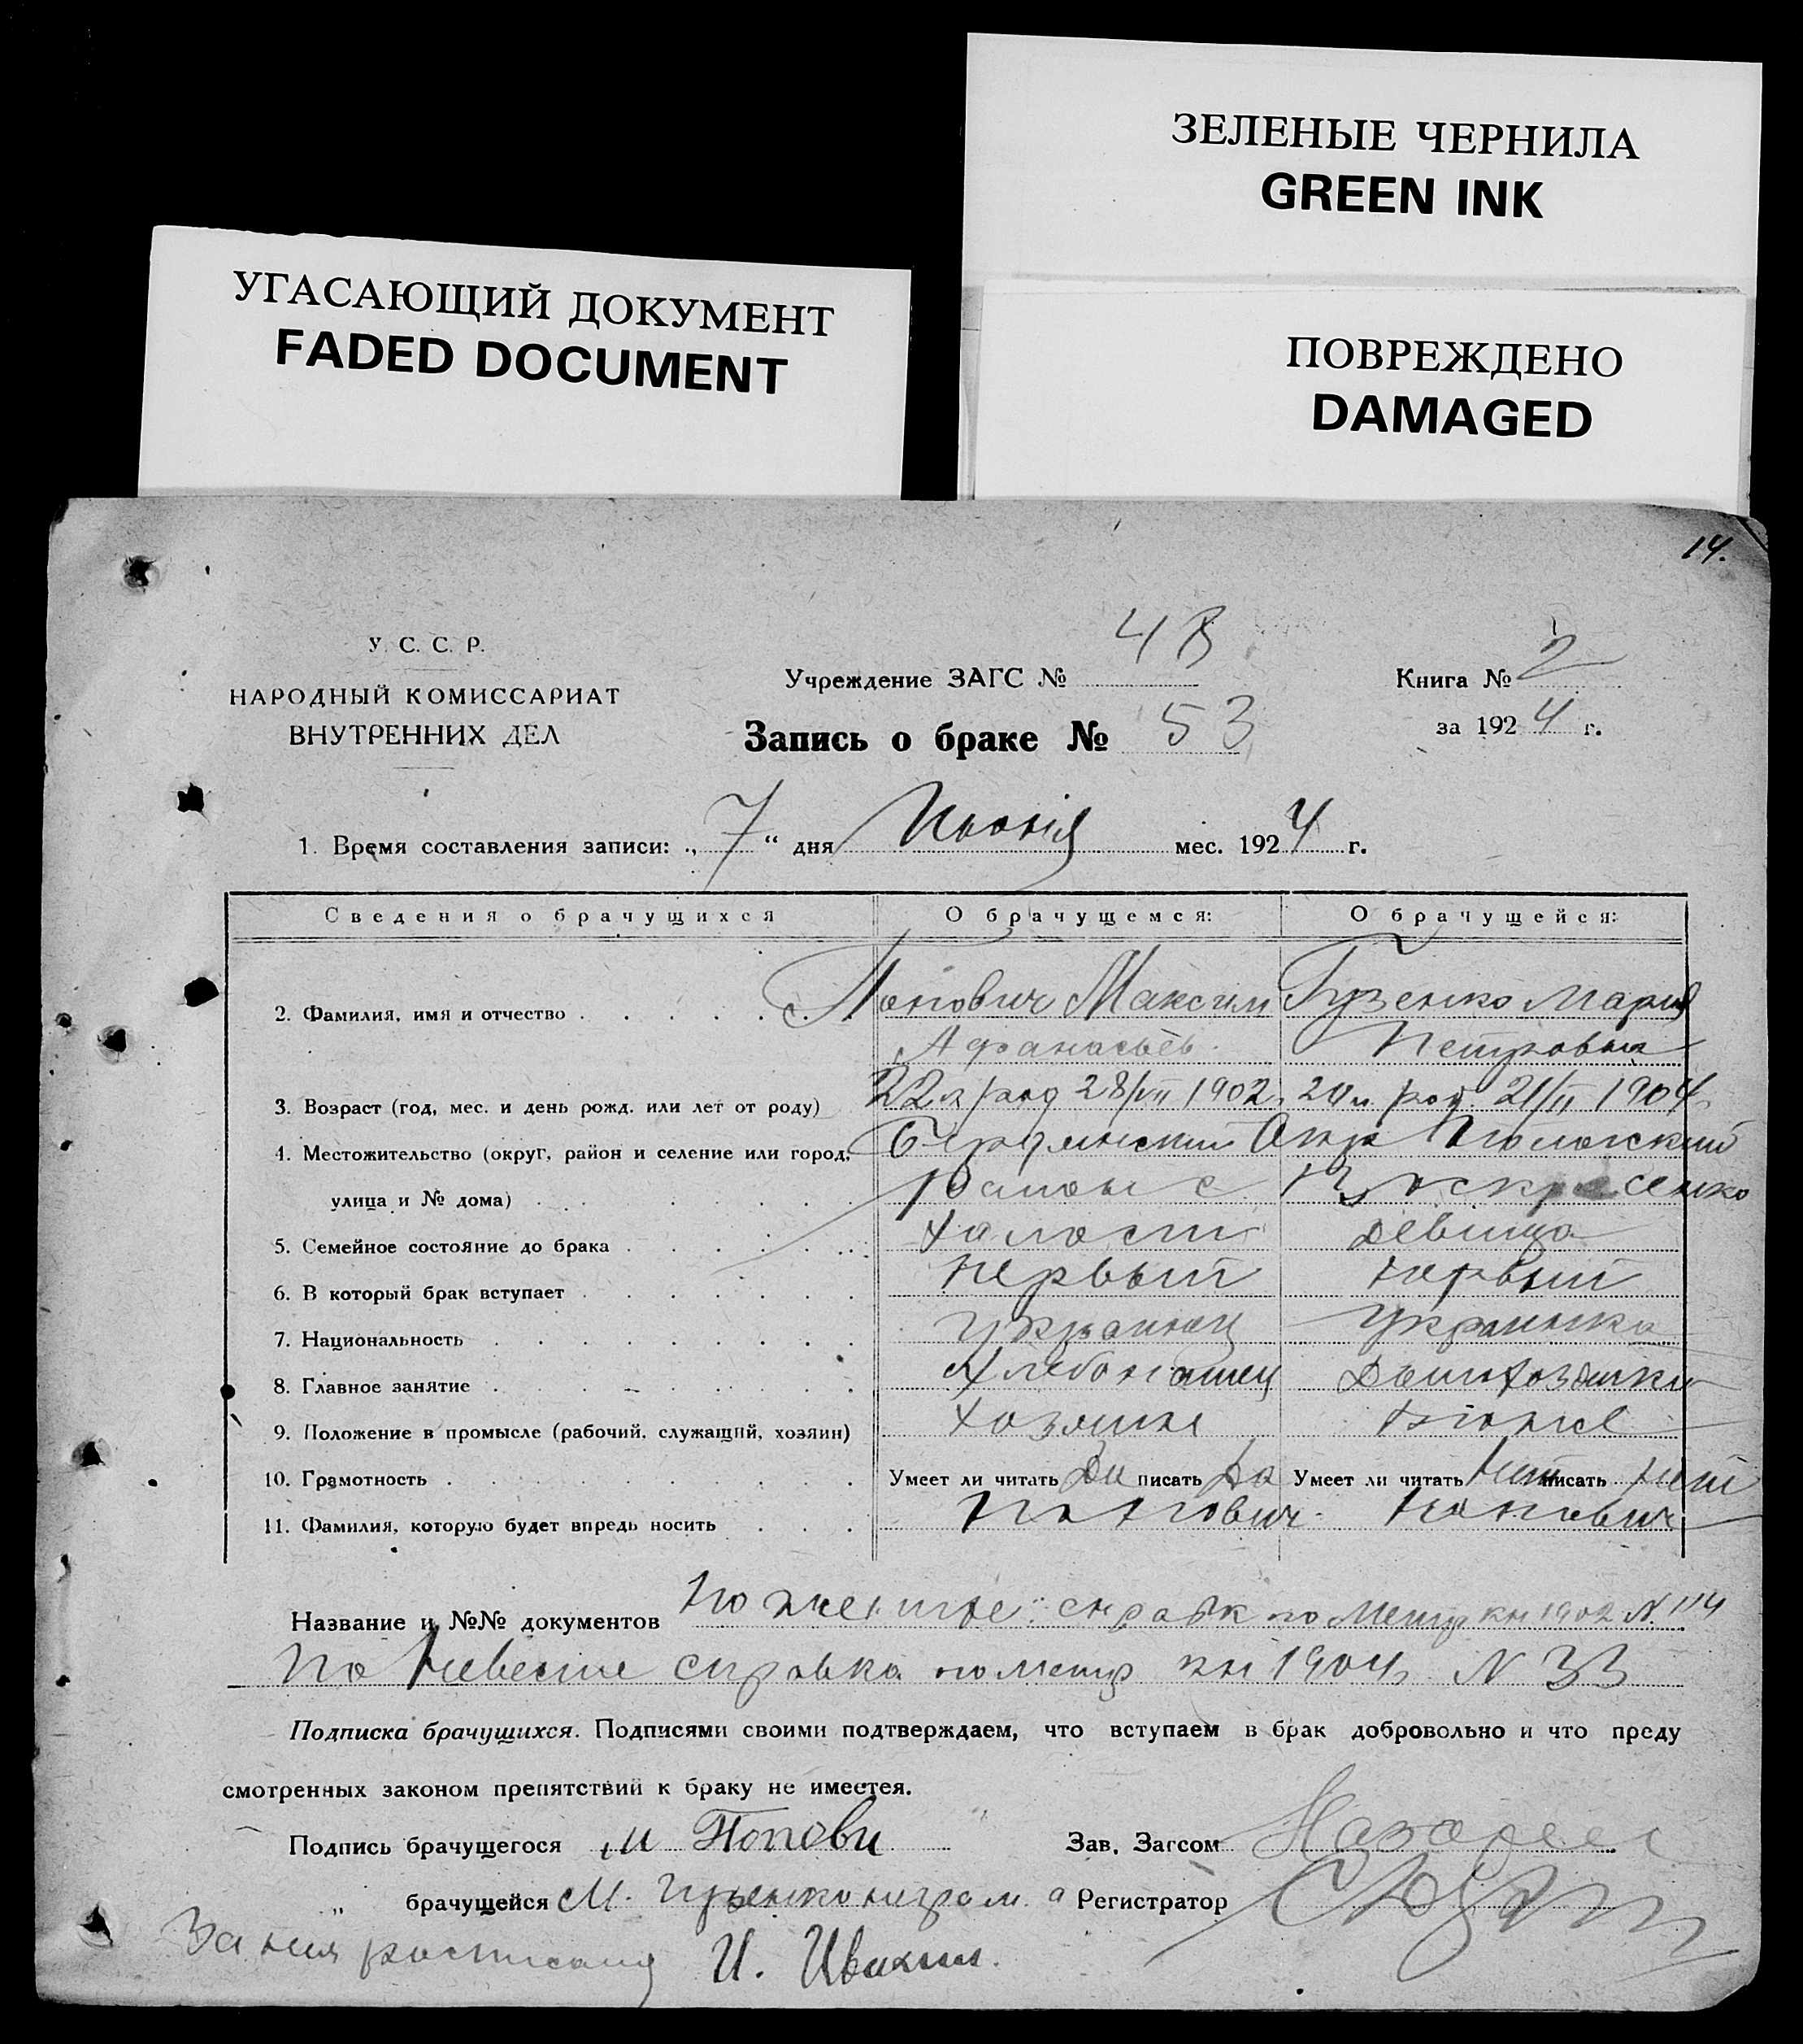 ЗЕЛЕНЫЕ ЧЕРНИЛА
GREEN INK
УГАСАЮЩИЙ ДОКУМЕНТ
FADED DOCUMENT
ПОВРЕЖДЕНО
DAMAGED
14.
У. С. С. Р.
НАРОДНЫЙ КОМИССАРИАТ
ВНУТРЕННИХ ДЕЛ
Учреждение ЗАГС №
Книга № 2
Запись о браке № 53
за 1924 г.
1. Время составления записи: „7“ дня Июнія мес. 1924 г.
Сведения о брачущихся О брачущемся: О брачущейся:
2. Фамилия, имя и отчество Попович Максим Гузенко Мария
Афанасьев. Петровна
3. Возраст (год, мес. и день рожд. или лет от роду) 22 л род 28/VII 1902 20 л. род. 21/II 1904
4. Местожительство (округ, район и селение или город, Бердянский Окр
улица и № дома) Район с.
5. Семейное состояние до брака Холост девица
6. В который брак вступает первый первый
7. Национальность украинец украинка
8. Главное занятие хлебопашец домхозяйка
9. Положение в промысле (рабочий, служащий, хозяин) хозяин
10. Грамотность Умеет ли читать Да писать Да Умеет ли читать нет писать нет
11. Фамилия, которую будет впредь носить Попович Попович
Название и №№ документов по женихе: справк по Метр кн 1902 N 114
По Невесте справка по метр кн 1904 N 33
Подписка брачущихся. Подписями своими подтверждаем, что вступаем в брак добровольно и что преду
смотренных законом препятствий к браку не имеетея.
Подпись брачущегося М Попови Зав. Загсом
„ брачущейся М. Гузенко неграм. а Регистратор
За нея росписался И.